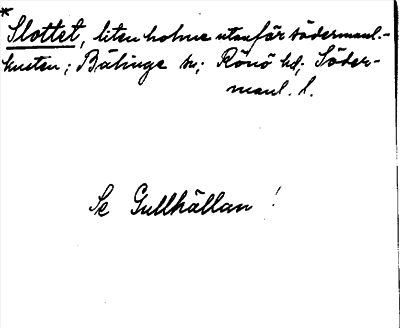 * Slottet, liten holme utanför södermanl.-
kusten; Bälinge sn; Rönö hd; Söder-
manl. l.
Se Gullkällan!